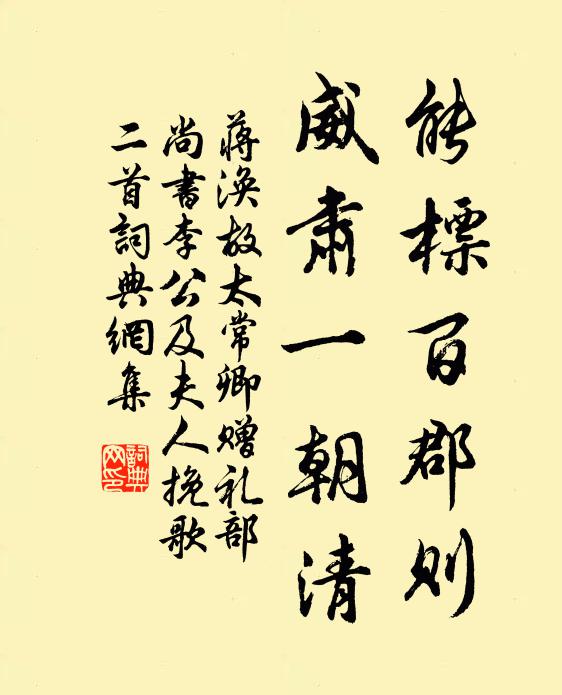 能標百郡則
威肅一朝清
蔣渙故太常卿贈礼部
尚書李公及夫人挽歌
二首詞典網集
詞典网印